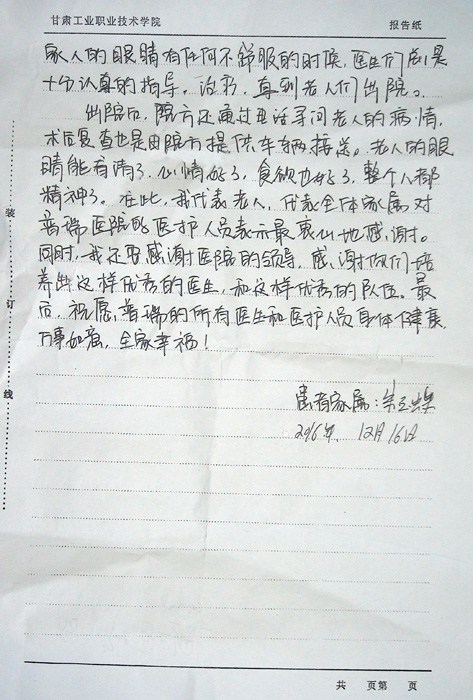 甘肃工业职业技术学院 报告纸
家人的眼睛有任何不舒服的时候，医生们总是
十分认真的指导。治疗，直到老人们出院。
出院后，院方还通过电话寻问老人的病情，
术后复查也是由院方提供车辆接送。老人的眼
睛能看清了，心情好了，食欲也好了，整个人都
精神了。在此，我代表老人，代表全体家属对
普瑞医院的医护人员表示最衷心地感谢。
同时，我还要感谢医院的领导，感谢你们培
养出这样优秀的医生，和这样优秀的队伍。最
后，祝愿普瑞的所有医生和医护人员身体健康
万事如意，全家幸福！
患者家属：
2016年 12月16日
装
订
线
共 页第 页